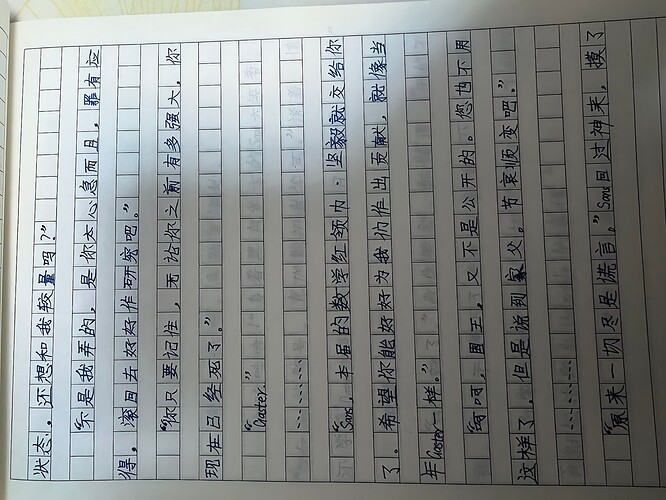 状态。还想和我较量吗?”
“不是我弄的,是你太心急而且,罪有应
得,滚回去好好作研究吧。”
“你只要记住,无论你之前有多强大,你
现在已经死了。”
“Gaster.”
…………
“Sans,本届的数学红领巾·坚毅就交给你
了。希望你能好好为我们作出贡献,就像当
年Gaster一样。”
“呵呵,国王,又不是公开的。您内不用
这样了,但是说到家父。节哀顺变吧。”
…………
“原来一切尽是谎言。”Sans回过神来,摸了